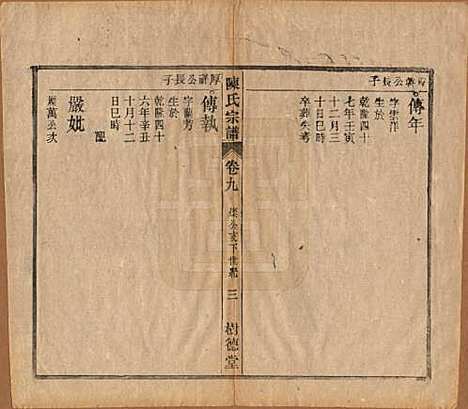 厚穀公長子
傳年
字崇洋
生於
乾隆四十
七年壬寅
十二月三
十日巳時
卒葬失考
陳氏宗譜
卷九
公支下世系
三
樹德堂
厚祥公長子
傳執
字蘭芳
生於
乾隆四十
六年辛丑
十月十二
日巳時
嚴妣
萬公次